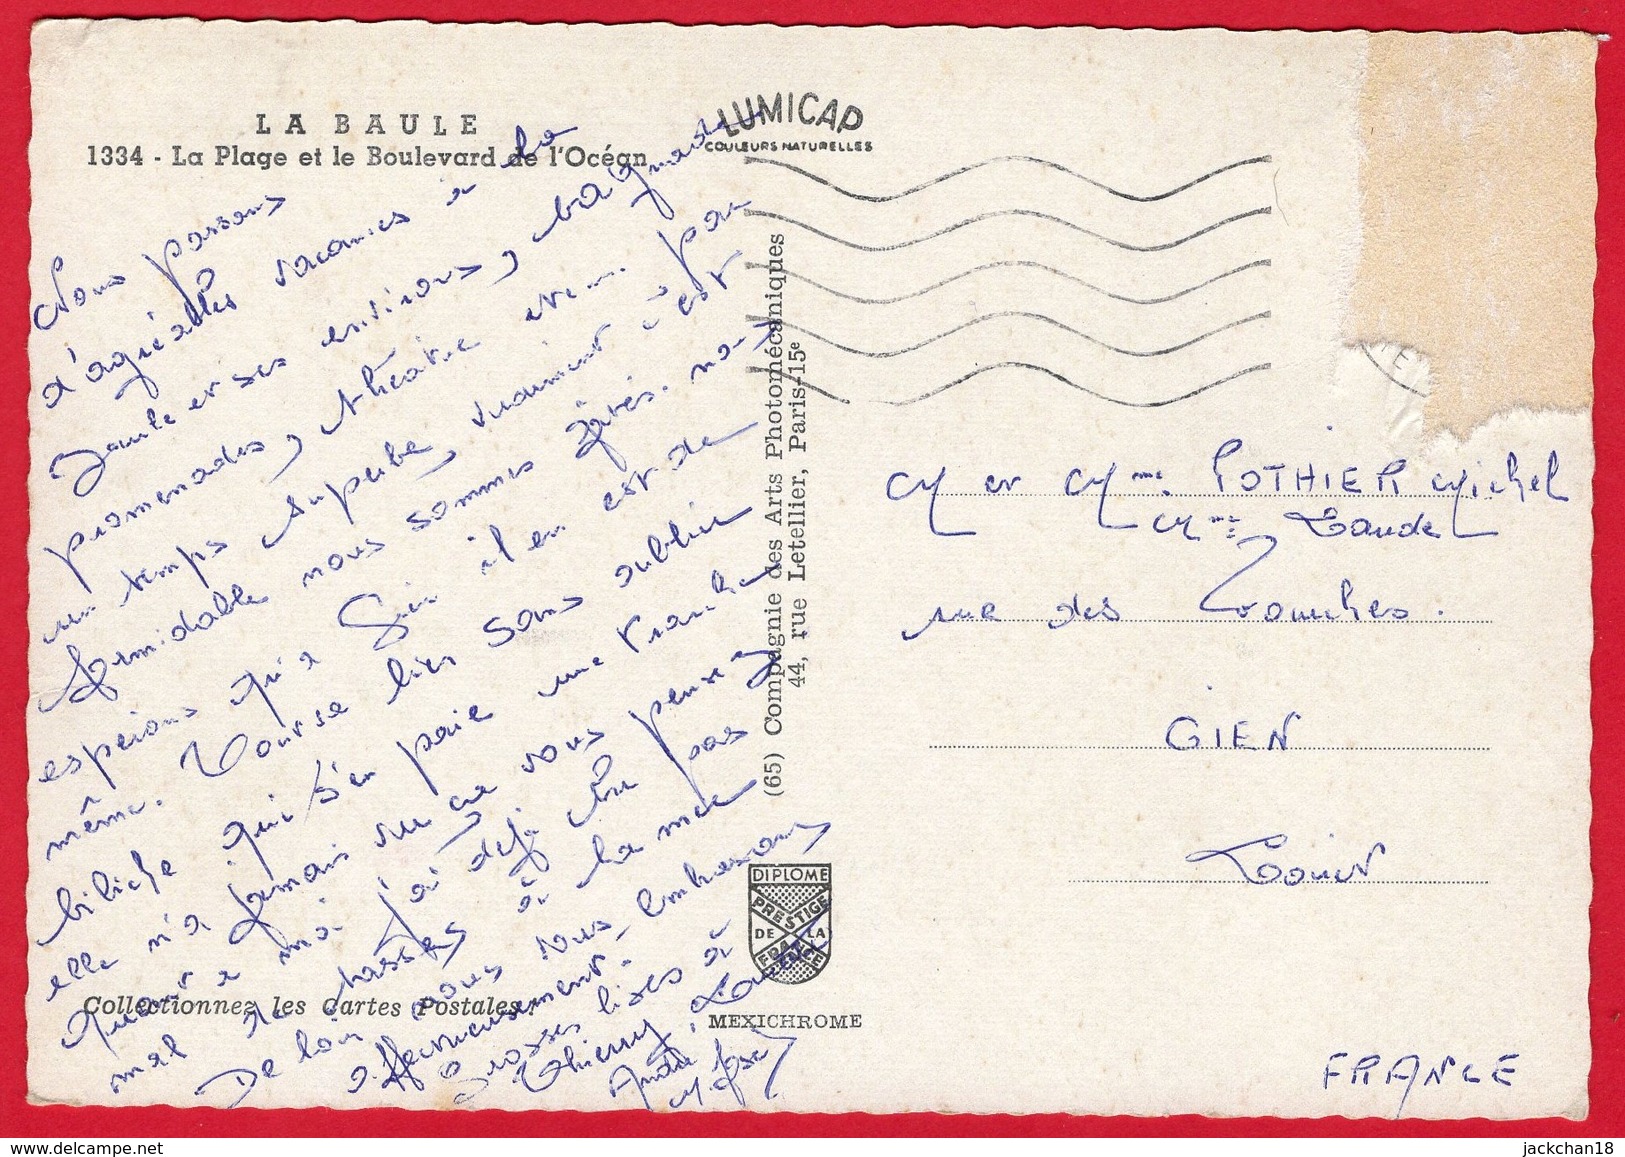 LA BAULE
1334 - La Plage et le Boulevard de l'Océan
LUMICAP
COULEURS NATURELLES
Nous passons
d'agréables vacances à la
Baule et ses environs, baignades
promenades, théâtre
un temps superbe, vraiment c'est
formidable nous sommes gâtés. nous
espérons qu'a Gien il en est de
même. Tourse bien sans oublier
biliche qui s'en paie une tranche
elle n'a jamais vu ça vous pensez
quant a moi j'ai déjà bu pas
mal de tasses à la mer
De loin nous vous embrassons
affectueusement.
Grosses bises à
Thierry, Laurent
André
M José
(65) Compagnie des Arts Photomécaniques
44, rue Letellier, Paris-15e
DIPLOME
PRESTIGE
DE LA
FRANCE
MEXICHROME
Collectionnez les Cartes Postales.
M et Mme POTHIER Michel
Mme Laudel
rue des Touches.
GIEN
Loiret
FRANCE
jackchan18